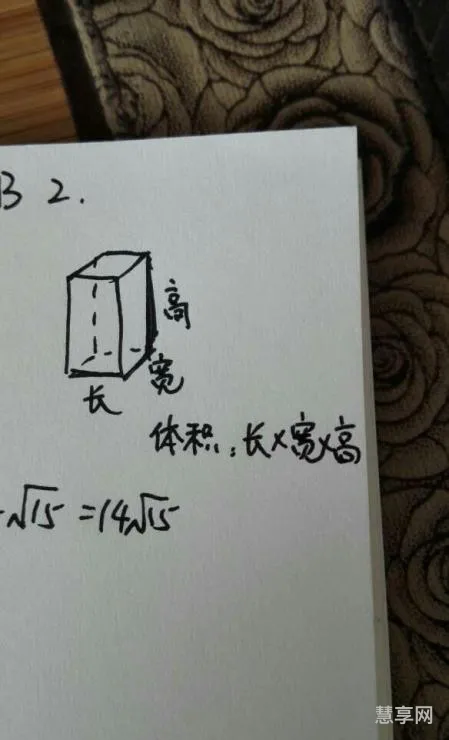 B 2.
高
宽
长
体积:长×宽×高
√15 =14√15
慧享网